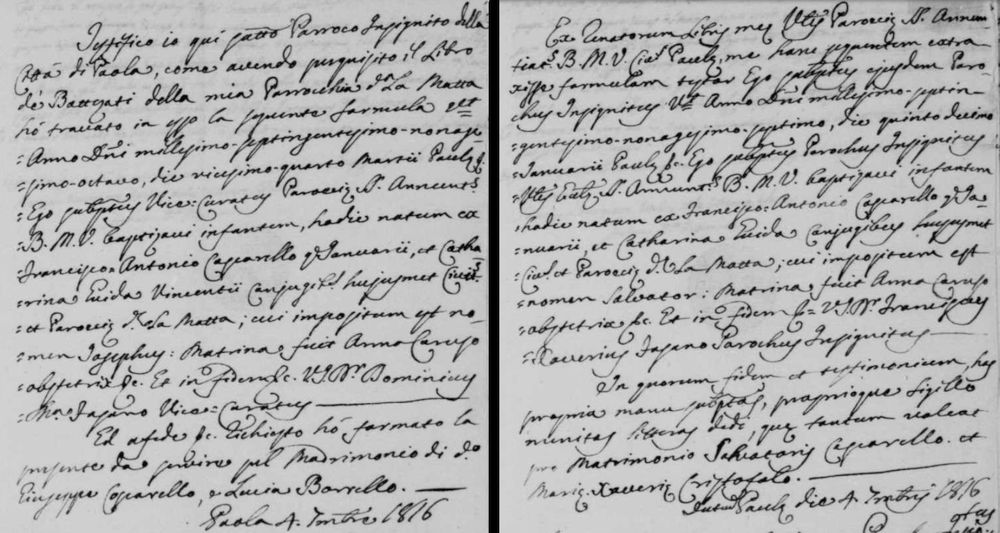 Testifico io qui sotto Parroco Insignito della
Città di Paola, come avendo perquisito il Libro
de' Battezzati della mia Parrocchia d.a La Matta
hò trovato in esso la seguente formola
Anno Dñi millesimo-septingentesimo-nonage-
=simo-octavo, die vicesimo-quarto Martii Paulæ
=Ego subptus Vice=Curatus Paroeciæ SS. Annunt.s
=B. M. V. baptizavi infantem, hodie natum ex
=Francisco=Antonio Caparello q Januarii, et Catha
=rina Guida Vincentii Conjugib.s hujusmet Civit.s
=et Paroeciæ d.æ La Matta; cui impositum est no-
=men Josephus: Matrina fuit Anna Caruso
=obstetrix &c. Et in fidem &c. Dominicus
=M.a Fasano Vice=Curatus
Ed a fede &c. richiesto hò formato la
presente da servire pel Madrimonio di d.o
Giuseppe Caparello, e Lucia Borrello.
Paola 4. 7mbre 1816
Ex Renatorum Libris meæ Paroeciæ SS. Annun
tiat.s B. M. V. Civ.s Paulæ, me hanc sequentem extra
xisse formulam testor Ego subptus ejusdem Paro-
chus Insignitus Anno Dñi millesimo-septin-
=gentesimo-nonagesimo-septimo, die quinto decimo
=Januarii Paulæ &c. Ego subptus Parochus Insignitus
SS. Annunt.s B. M. V. baptizavi infantem
=hodie natum ex Francisco=Antonio Caparello q Ja-
=nuarii, et Catharina Guida Conjugibus hujusmet
=Civ.s et Paroeciæ d.æ La Matta; cui impositum est
=nomen Salvator: Matrina fuit Anna Caruso
=obstetrix &c. Et in fidem &c= Franciscus
=Xaverius Fasano Parochus Insignitus
In quorum fidem et testimonium, has
propria manu subptas, proprioque sigillo
munitas litteras dedi, quæ tantum valeat
pro Matrimonio Salvatoris Caparello. et
Mariæ Xaveriæ Cristofalo.
Datum Paulæ die 4. 7mbris 1816